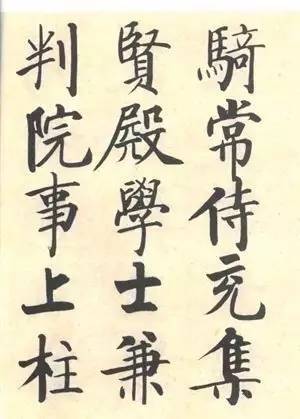 騎常侍充集
賢殿學士兼
判院事上柱